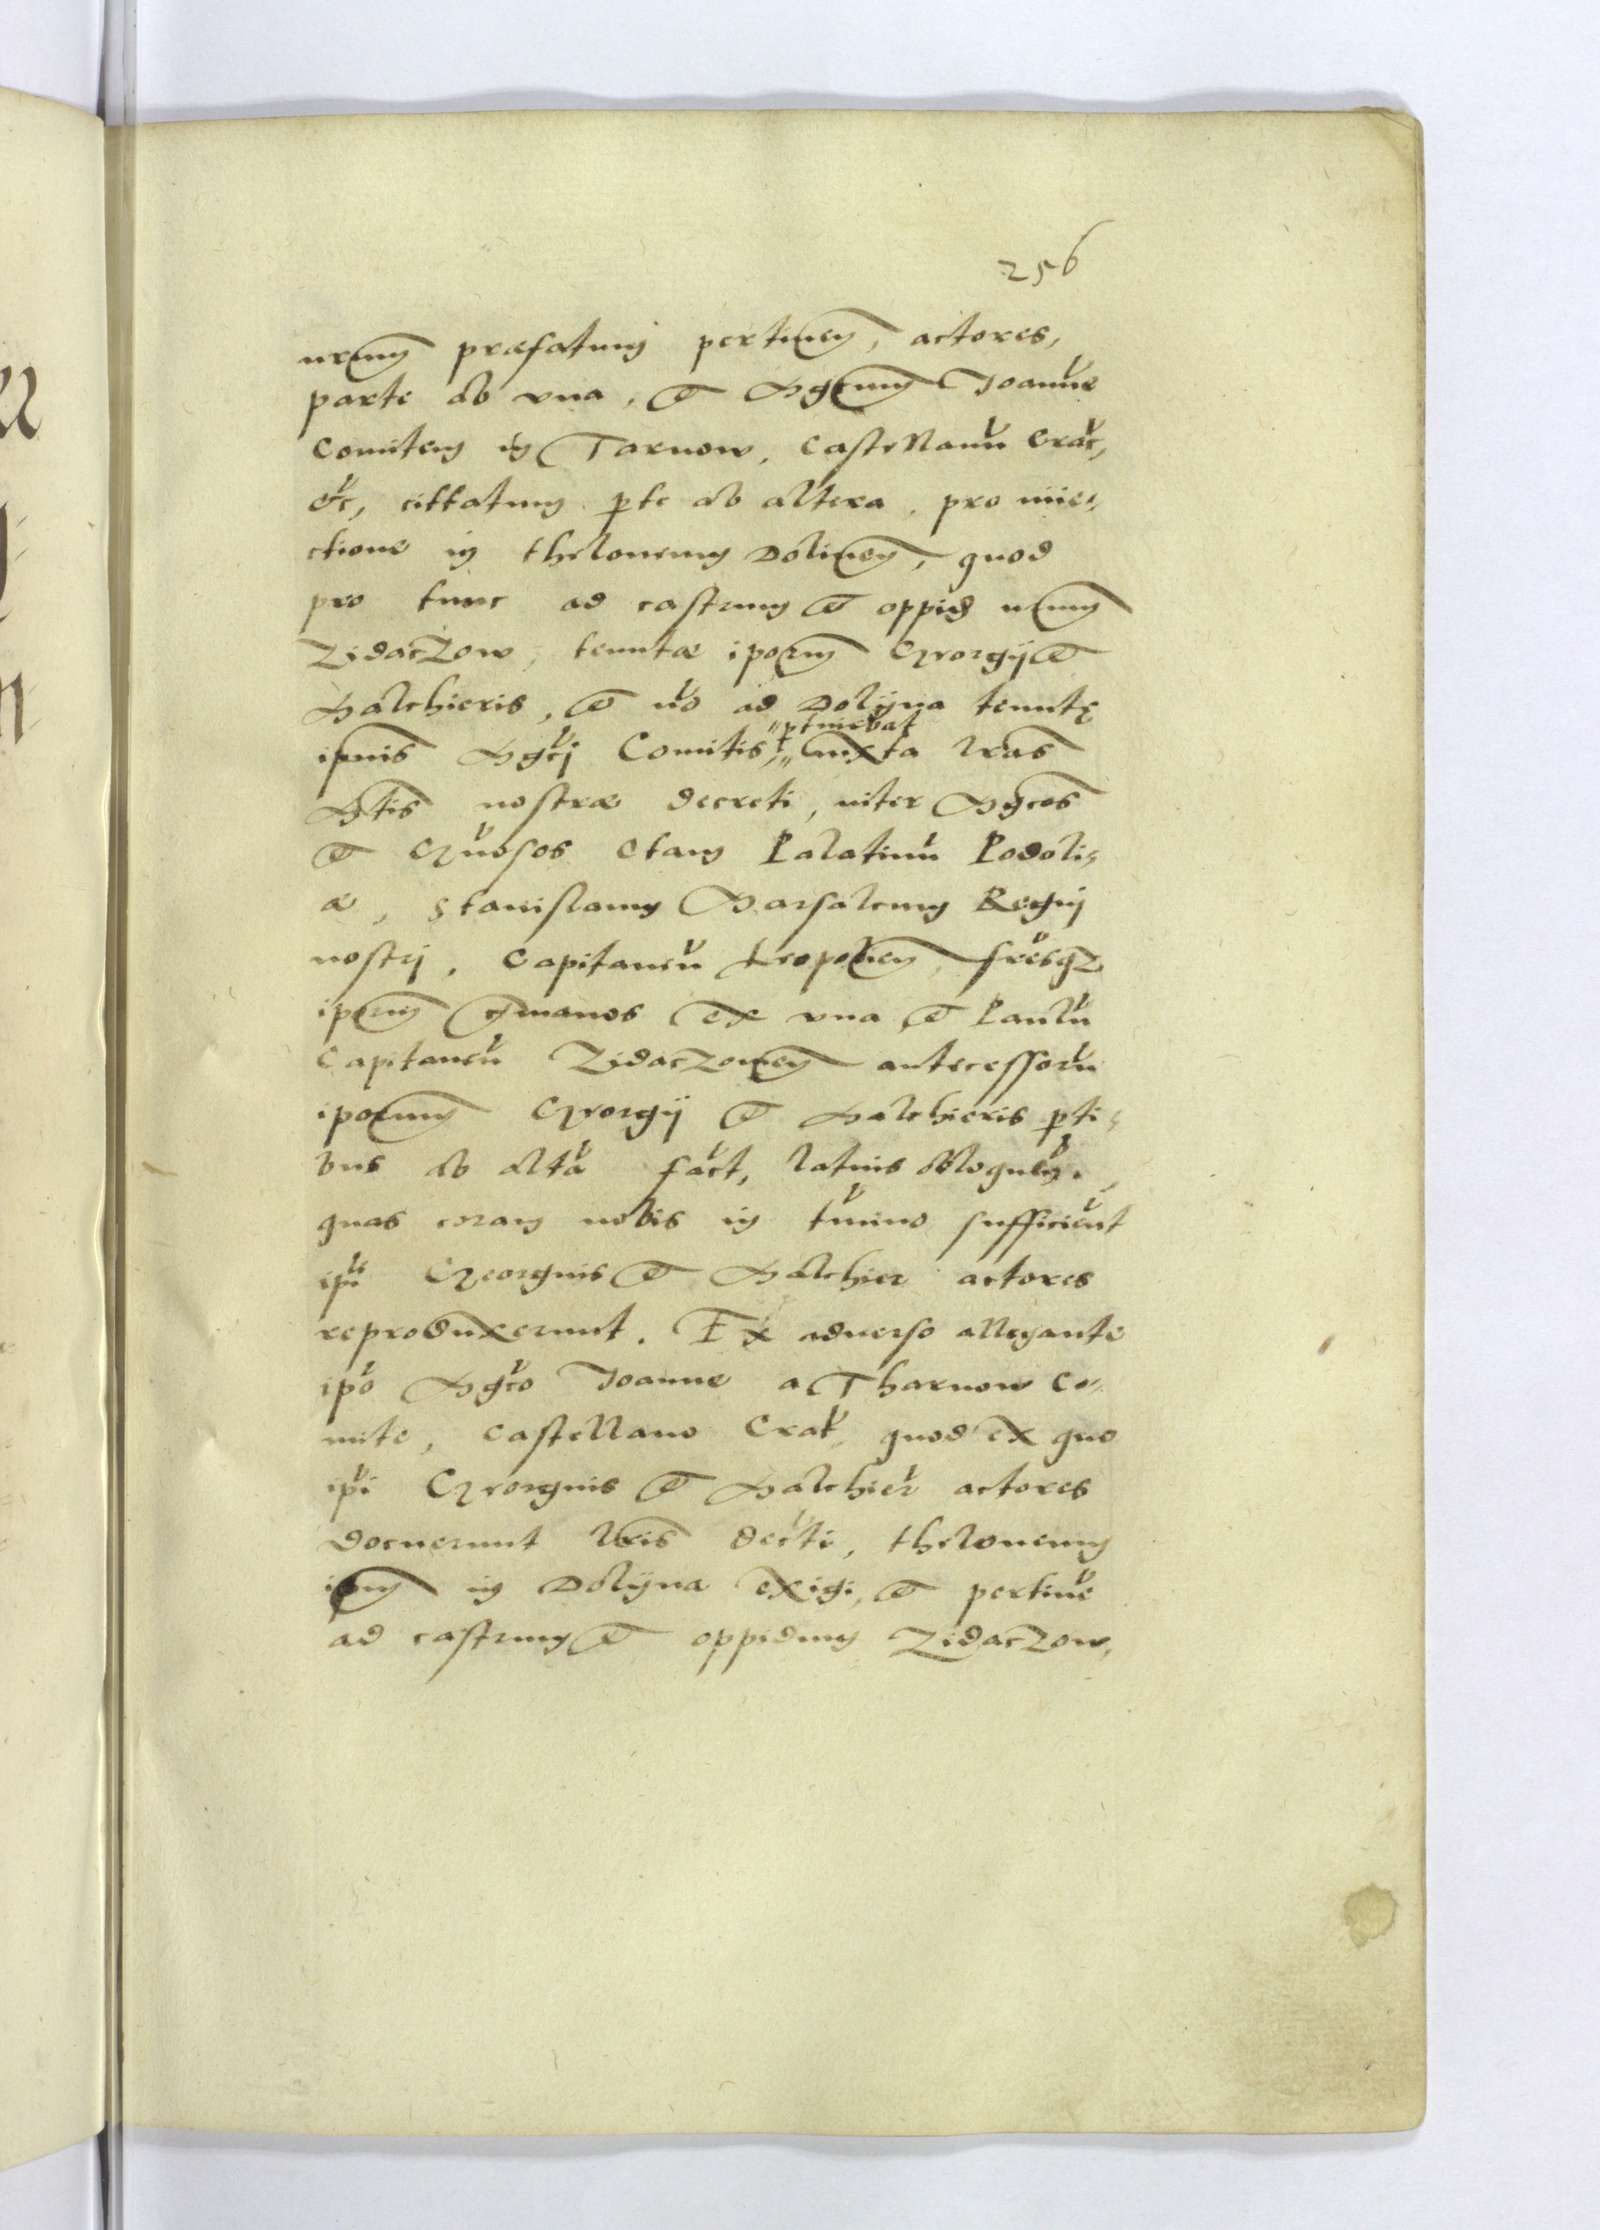 256
nrum præfatum pertinen, actores,
parte ab vna, et Mgcum Joanne
Comitem in Tarnow, Castellanu Crac,
etc, cittatum pte ab altera, pro inie-
ctione in theloneum Dolinen, quod
pro tunc ad castrum et oppid nrum
Zidaczow, tenutæ ipsorum Georgij et
Balthieris, et no ad Dolyna tenutę
ipius Mgci Comitis, ptinebat iuxta lras
Mtis nostræ decreti, inter Mgcos
et Gnosos Otam Palatinu Podoli-
æ, Stanislaum Marsalcum Regnj
nostrj, Capitaneu Leopolien, fresqz
iporum germanos ex vna et Paulu
Capitaneu Zidaczowien antecessoru
iporum Georgij et Balthieris pti-
bus ab alta fact, latius obloquen.
quas coram nobis in tmino sufficient
ipi Georgius et Balthier actores
reproduxerunt. Ex aduerso allegante
ipo Mgco Joanne a Tharnow Co-
mite, Castellano Crac, quod ex quo
ipi Georgius et Balthier actores
docuerunt lris decti, theloneum
ipm in Dolyna exigi, et pertine
ad castrum et oppidum Zidaczow,